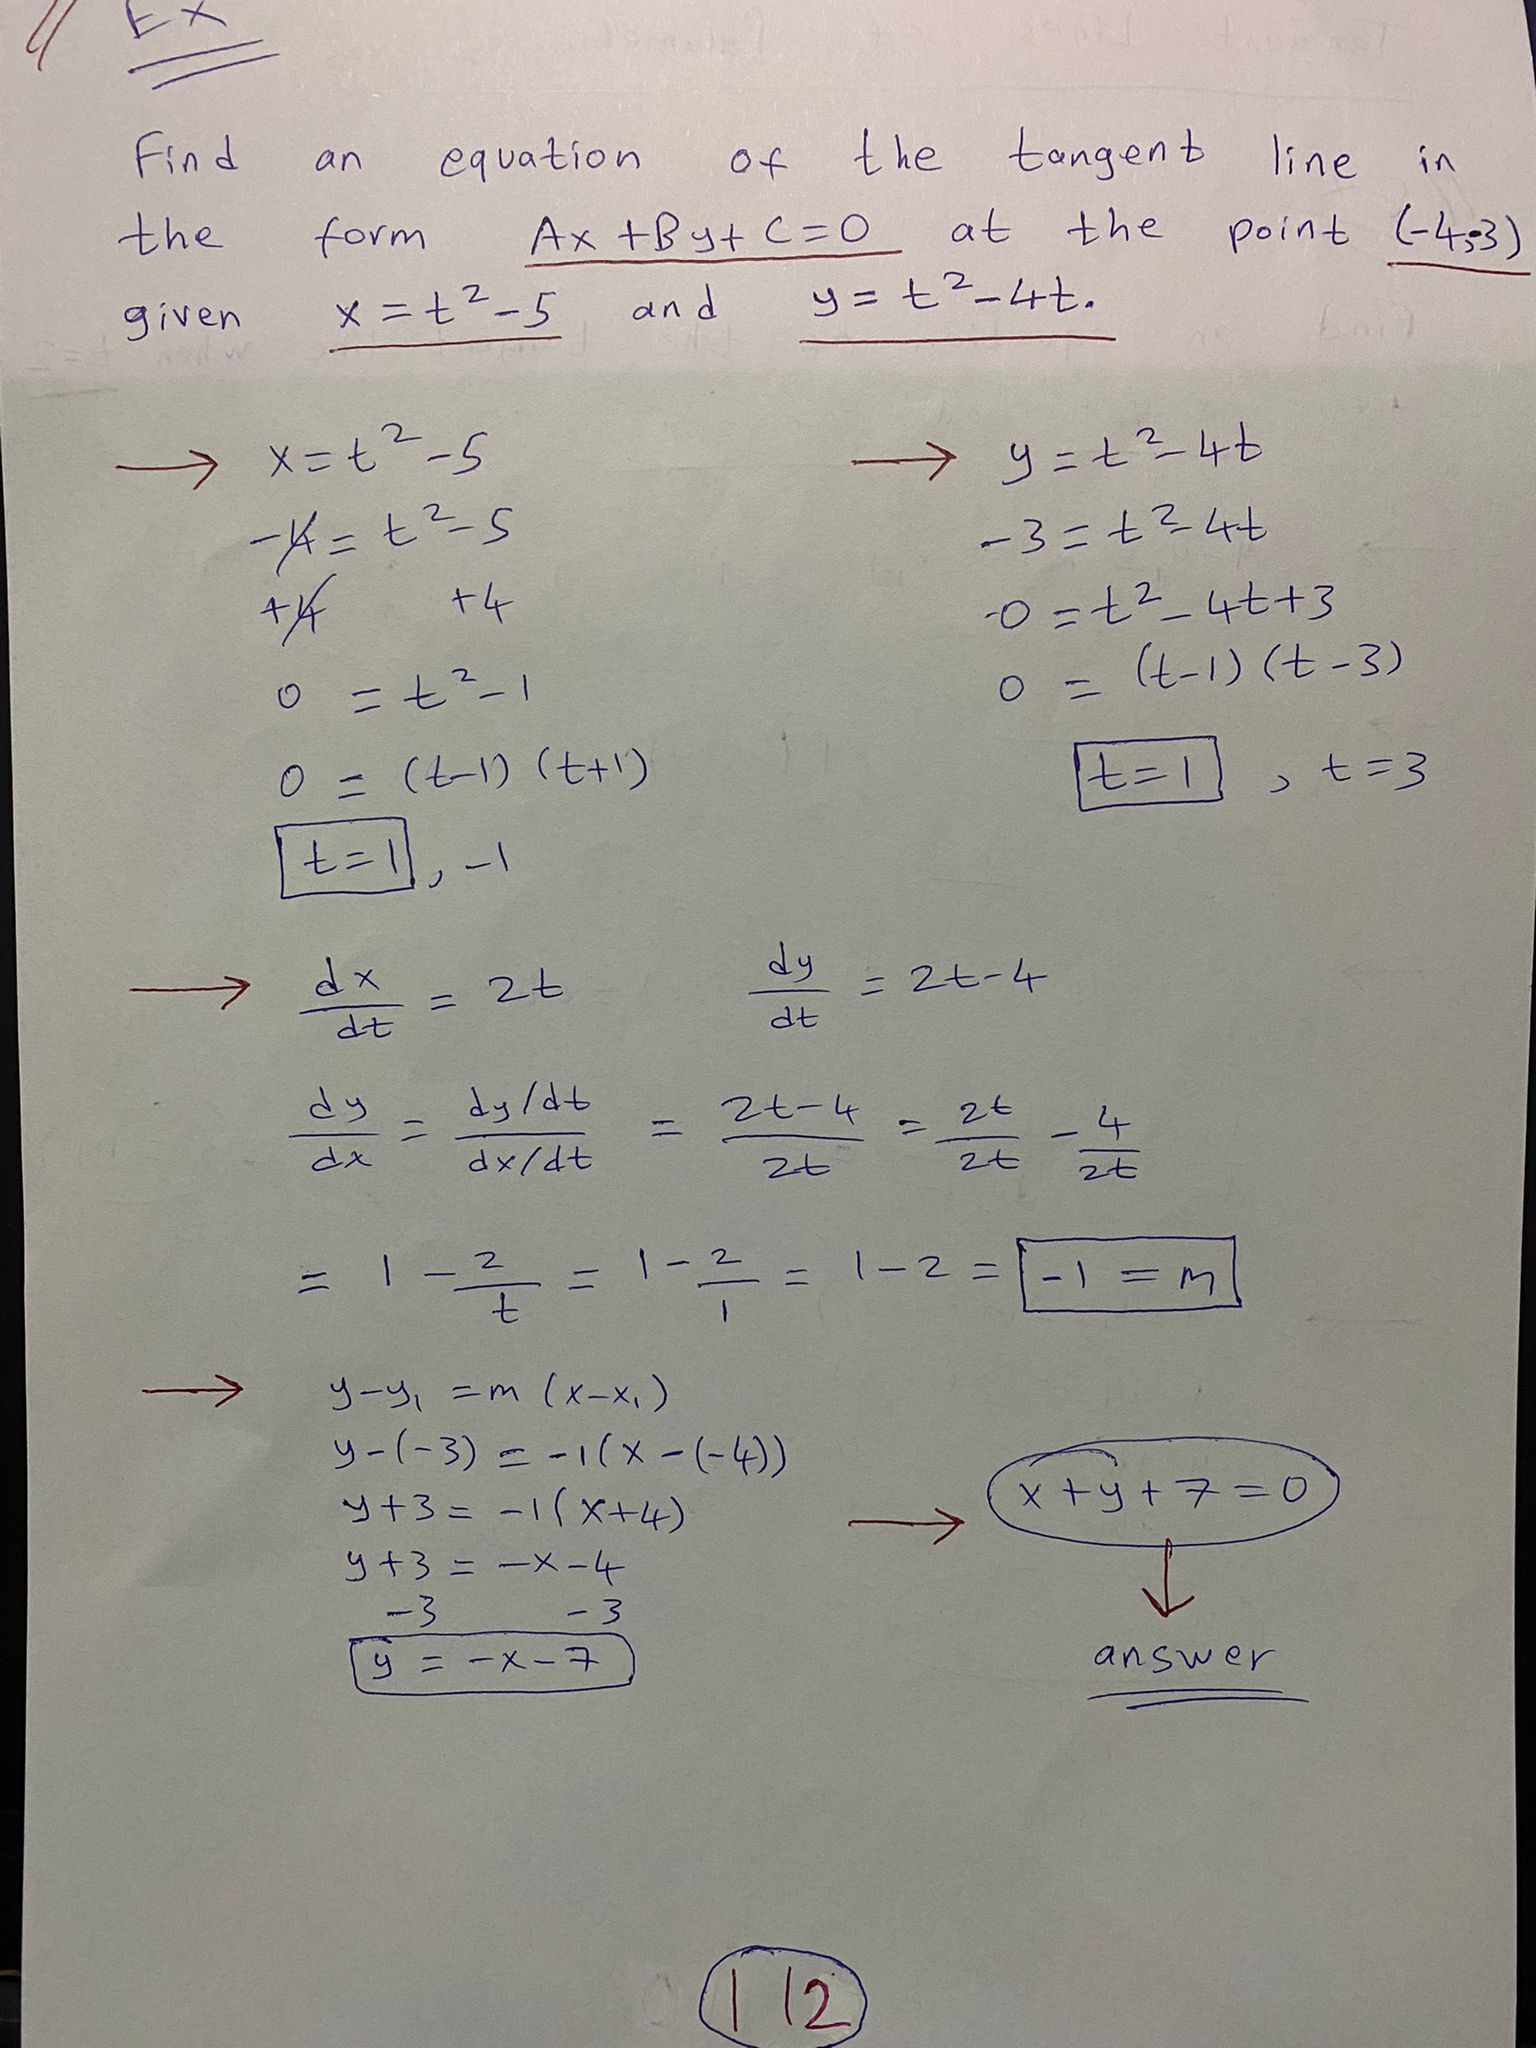 Ex
Find an equation of the tangent line in
the form Ax+By+C=0 at the point (-4,-3)
given x=t²-5 and y=t²-4t.
→ x=t²-5
-4=t²-5
+4 +4
0=t²-1
0=(t-1)(t+1)
t=1, -1
→ y=t²-4t
-3=t²-4t
0=t²-4t+3
0=(t-1)(t-3)
t=1, t=3
→ dx/dt=2t dy/dt=2t-4
dy/dx = (dy/dt)/(dx/dt) = (2t-4)/2t = 2t/2t - 4/2t
= 1-2/t = 1-2/1 = 1-2 = -1=m
→ y-y₁=m(x-x₁)
y-(-3)=-1(x-(-4))
y+3=-1(x+4)
y+3=-x-4
-3 -3
y=-x-7
→ x+y+7=0
answer
112